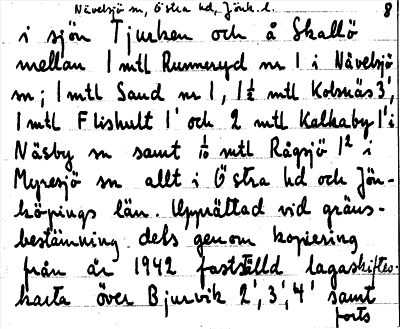 Nävelsjö sn, Östra hd, Jönk. l. 8
i sjön Tjurken och å Skallö
mellan 1 mtl Runneryd nr 1 i Nävelsjö
sn; 1 mtl Sand nr 1, 1½ mtl Kolsnäs 3¹,
1 mtl Flishult 1¹ och 2 mtl Kalkaby 1¹ i
Näsby sn samt 1/10 mtl Rågsjö 1² i
Myresjö sn allt i Östra hd och Jön-
köpings län. Upprättad vid gräns-
bestämning dels genom kopiering
från år 1942 fastställd lagaskiftes-
karta över Bjurvik 2¹, 3¹, 4¹ samt
forts